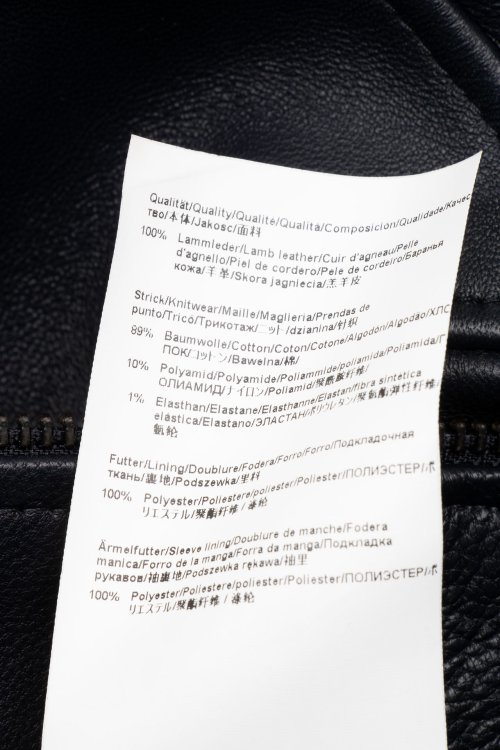 Qualität/Quality/Qualité/Qualità/Composicion/Qualidade/Качес
тво/本体/Jakosc/面料
100% Lammleder/Lamb leather/Cuir d'agneau/Pelle
d'agnello/Piel de cordero/Pele de cordeiro/Баранья
кожа/羊革/Skora jagniecia/羔羊皮
Strick/Knitwear/Maille/Maglieria/Prendas de
punto/Tricó/Трикотаж/ニット/dzianina/针织
89% Baumwolle/Cotton/Coton/Cotone/Algodón/Algodão/ХЛО
ПОК/コットン/Bawelna/棉/
10% Polyamid/Polyamide/Poliammide/poliamida/Poliamida/П
ОЛИАМИД/ナイロン/Poliamid/聚酰胺纤维/
1% Elasthan/Elastane/Elasthanne/Elastan/fibra sintética
elástica/Elastano/ЭЛАСТАН/ポリウレタン/聚氨酯弹性纤维/
氨纶
Futter/Lining/Doublure/Fodera/Forro/Forro/Подкладочная
ткань/裏地/Podszewka/里料
100% Polyester/Poliestere/poliester/Poliester/ПОЛИЭСТЕР/ポ
リエステル/聚酯纤维 / 涤纶
Ärmelfutter/Sleeve lining/Doublure de manche/Fodera
manica/Forro de la manga/Forra da manga/Подкладка
рукавов/袖裏地/Podszewka rękawa/袖里
100% Polyester/Poliestere/poliester/Poliester/ПОЛИЭСТЕР/ポ
リエステル/聚酯纤维 / 涤纶